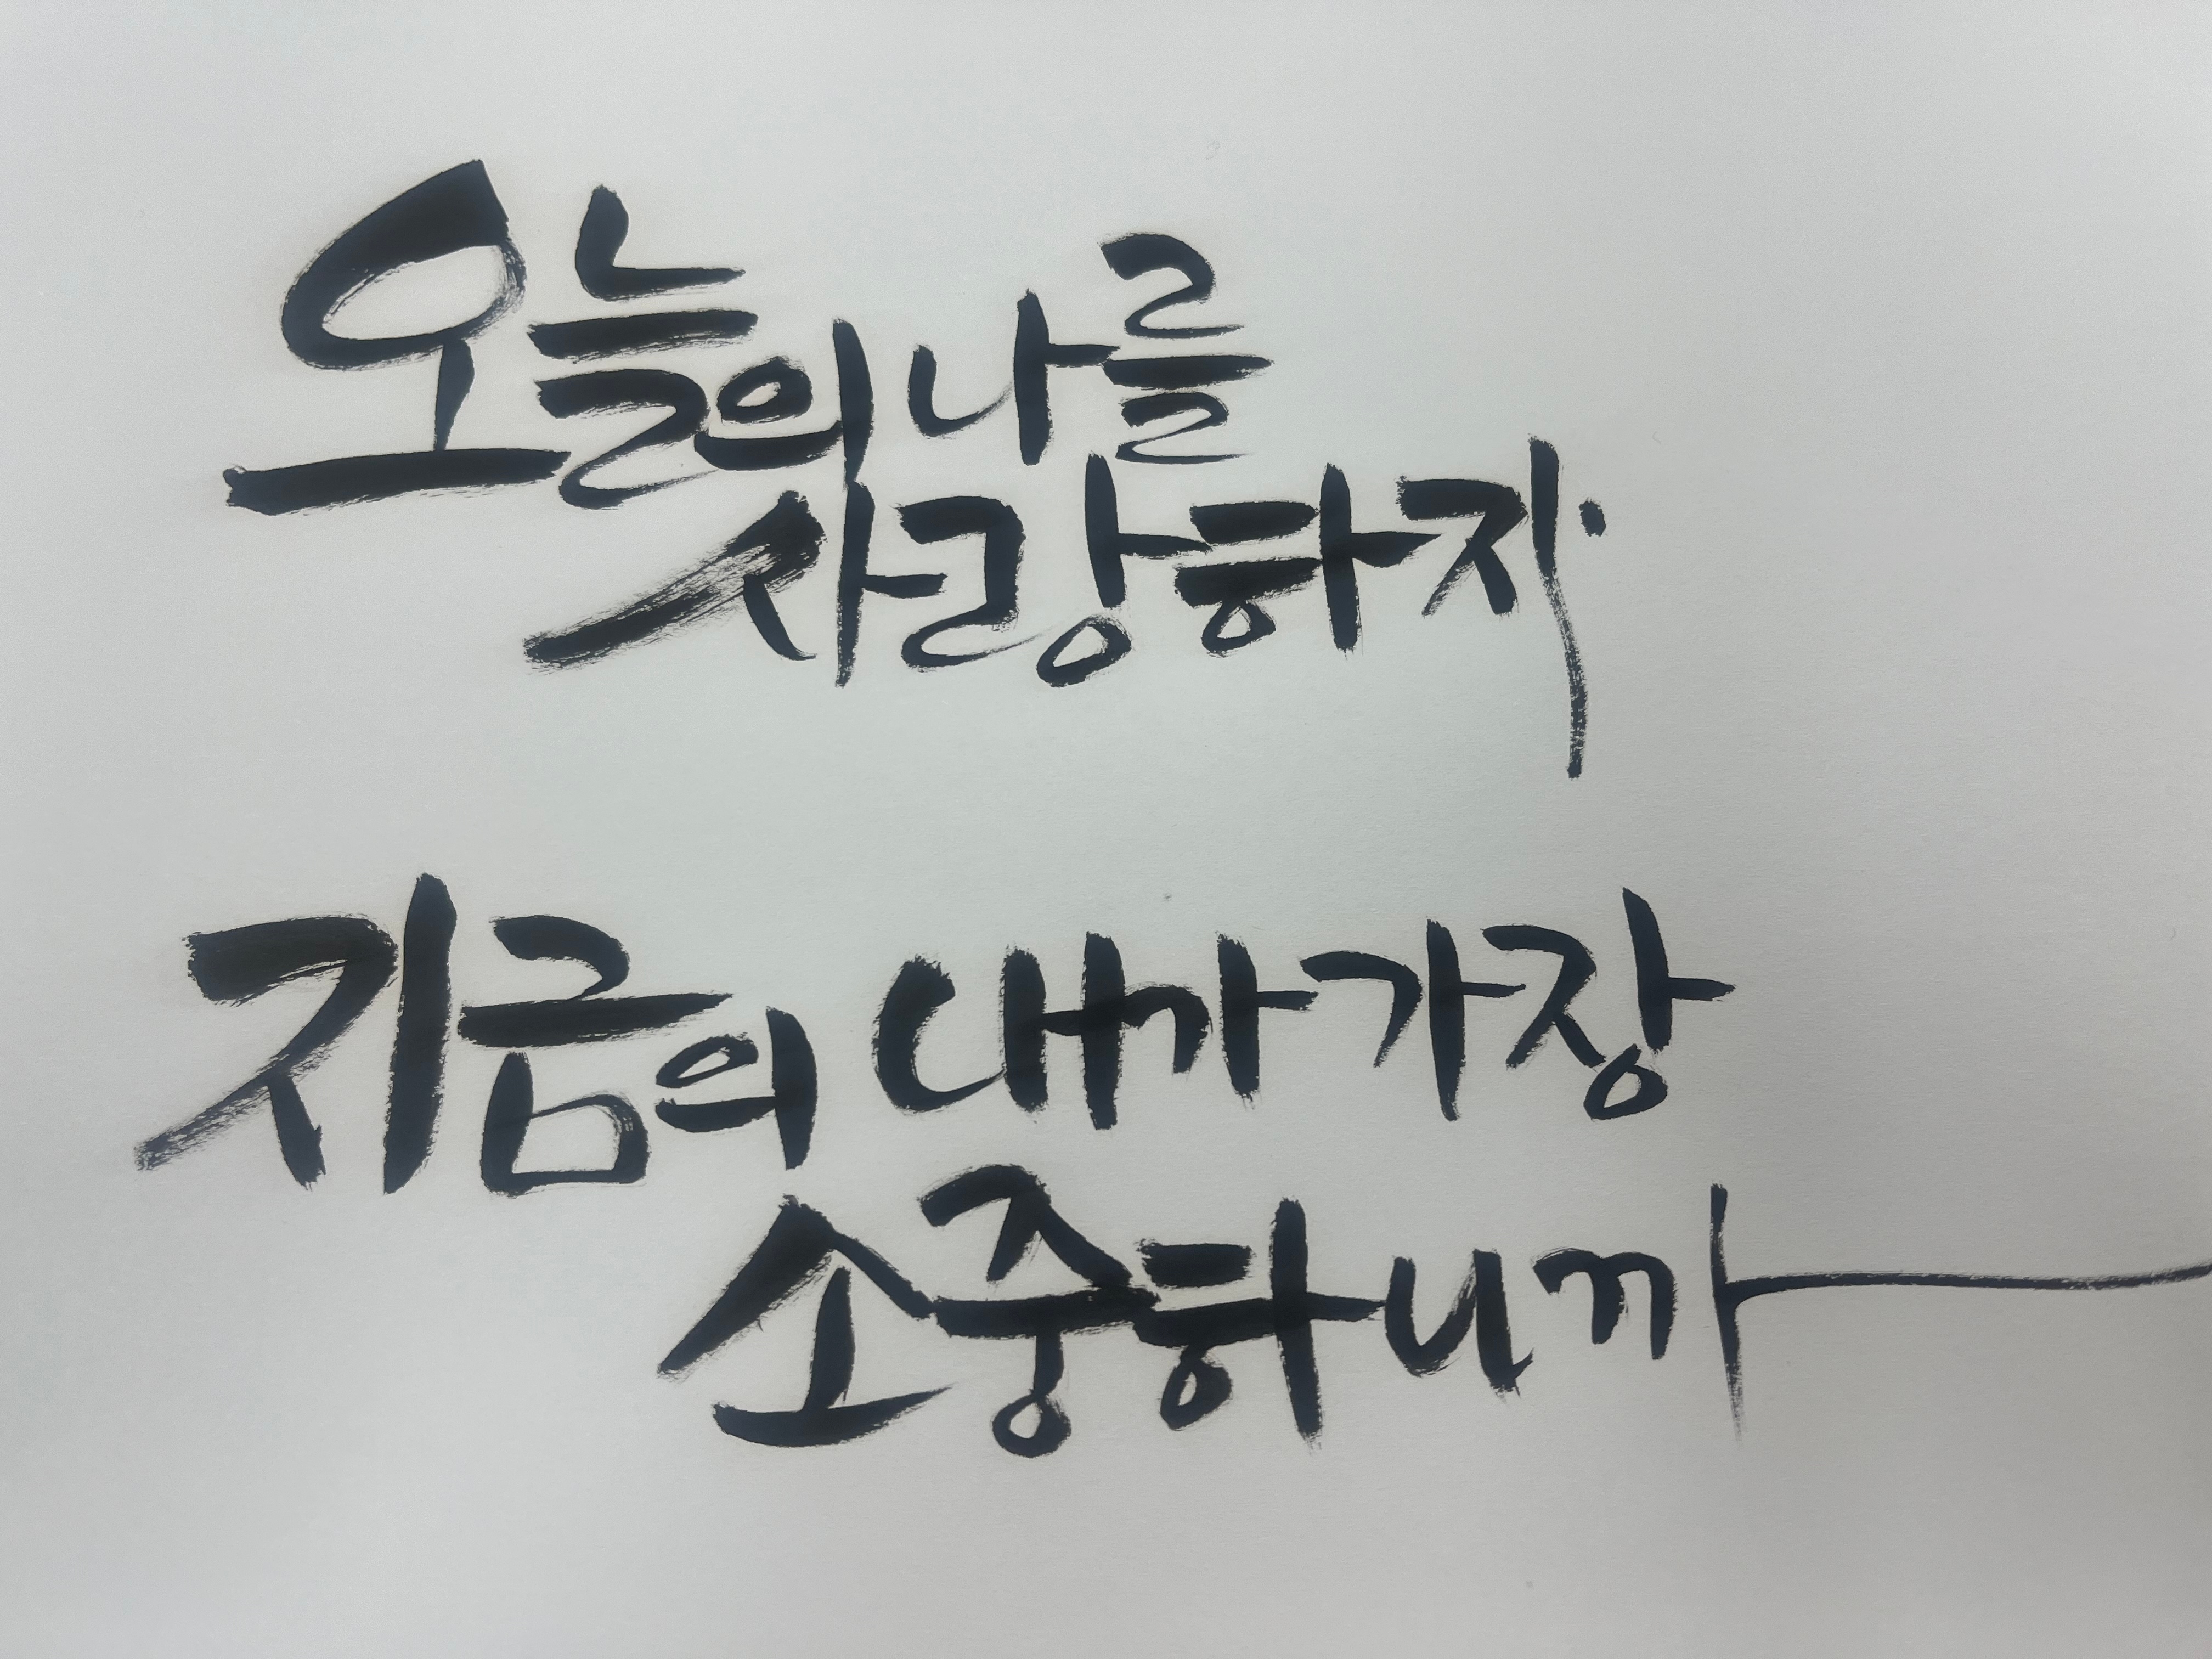 오늘의 나를
사랑하자
지금의 내가 가장
소중하니까